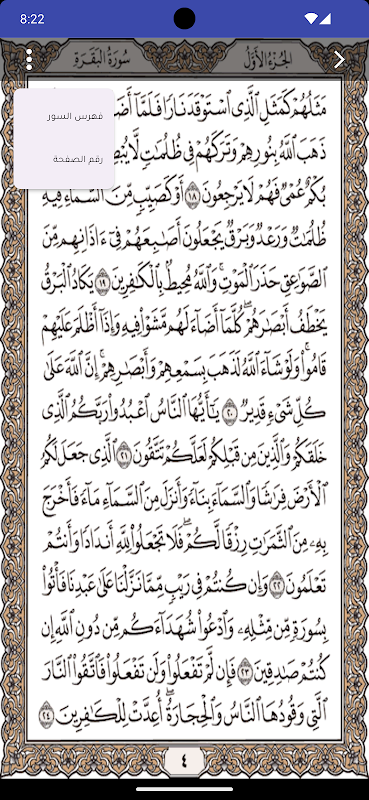 8:22
سُورَةُ البَقَرَةِ
الجُزْءُ الأَوَّلُ
فهرس السور
رقم الصفحة
مَثَلُهُمْ كَمَثَلِ ٱلَّذِى ٱسْتَوْقَدَ نَارًا فَلَمَّآ أَضَ
ذَهَبَ ٱللَّهُ بِنُورِهِمْ وَتَرَكَهُمْ فِى ظُلُمَٰتٍ لَّا يُبْصِ
بُكْمٌ عُمْىٌ فَهُمْ لَا يَرْجِعُونَ ١٨ أَوْ كَصَيِّبٍ مِّنَ ٱلسَّمَآءِ فِيهِ
ظُلُمَٰتٌ وَرَعْدٌ وَبَرْقٌ يَجْعَلُونَ أَصَٰبِعَهُمْ فِىٓ ءَاذَانِهِم مِّنَ
ٱلصَّوَٰعِقِ حَذَرَ ٱلْمَوْتِ ۚ وَٱللَّهُ مُحِيطٌۢ بِٱلْكَٰفِرِينَ ١٩ يَكَادُ ٱلْبَرْقُ
يَخْطَفُ أَبْصَٰرَهُمْ ۖ كُلَّمَآ أَضَآءَ لَهُم مَّشَوْا۟ فِيهِ وَإِذَآ أَظْلَمَ عَلَيْهِمْ
قَامُوا۟ ۚ وَلَوْ شَآءَ ٱللَّهُ لَذَهَبَ بِسَمْعِهِمْ وَأَبْصَٰرِهِمْ ۚ إِنَّ ٱللَّهَ عَلَىٰ
كُلِّ شَىْءٍ قَدِيرٌ ٢٠ يَٰٓأَيُّهَا ٱلنَّاسُ ٱعْبُدُوا۟ رَبَّكُمُ ٱلَّذِى
خَلَقَكُمْ وَٱلَّذِينَ مِن قَبْلِكُمْ لَعَلَّكُمْ تَتَّقُونَ ٢١ ٱلَّذِى جَعَلَ لَكُمُ
ٱلْأَرْضَ فِرَٰشًا وَٱلسَّمَآءَ بِنَآءً وَأَنزَلَ مِنَ ٱلسَّمَآءِ مَآءً فَأَخْرَجَ
بِهِۦ مِنَ ٱلثَّمَرَٰتِ رِزْقًا لَّكُمْ ۖ فَلَا تَجْعَلُوا۟ لِلَّهِ أَندَادًا وَأَنتُمْ
تَعْلَمُونَ ٢٢ وَإِن كُنتُمْ فِى رَيْبٍ مِّمَّا نَزَّلْنَا عَلَىٰ عَبْدِنَا فَأْتُوا۟
بِسُورَةٍ مِّن مِّثْلِهِۦ وَٱدْعُوا۟ شُهَدَآءَكُم مِّن دُونِ ٱللَّهِ إِن
كُنتُمْ صَٰدِقِينَ ٢٣ فَإِن لَّمْ تَفْعَلُوا۟ وَلَن تَفْعَلُوا۟ فَٱتَّقُوا۟ ٱلنَّارَ
ٱلَّتِى وَقُودُهَا ٱلنَّاسُ وَٱلْحِجَارَةُ ۖ أُعِدَّتْ لِلْكَٰفِرِينَ ٢٤
٤